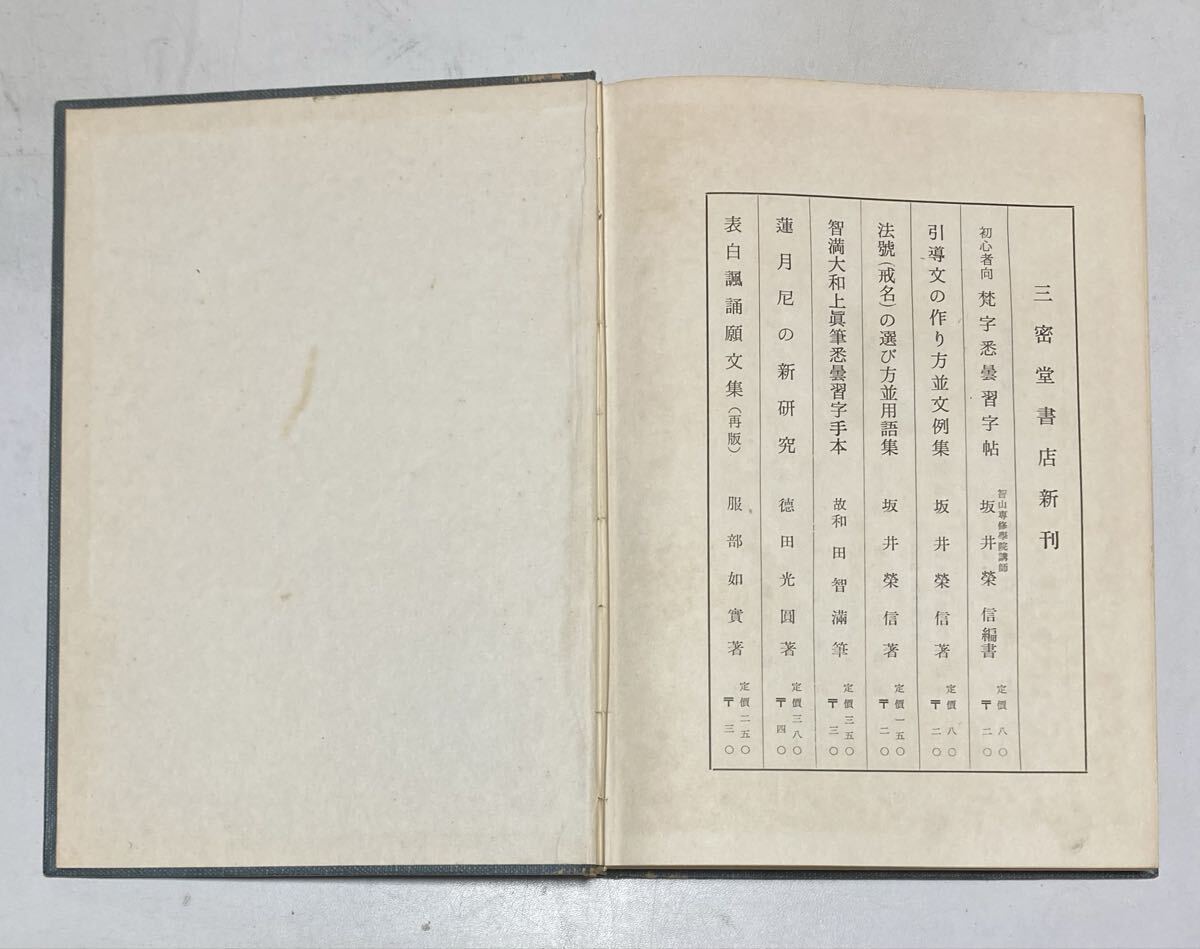 三密堂書店新刊
初心者向 梵字悉曇習字帖 智山専修學院講師 坂井榮信編書 定價八〇 〒二〇
引導文の作り方並文例集 坂井榮信著 定價八〇 〒二〇
法號(戒名)の選び方並用語集 坂井榮信著 定價一五〇 〒二〇
智満大和上眞筆悉曇習字手本 故和田智満筆 定價三五〇 〒三〇
蓮月尼の新研究 德田光圓著 定價三八〇 〒四〇
表白諷誦願文集(再版) 服部如實著 定價二五〇 〒三〇